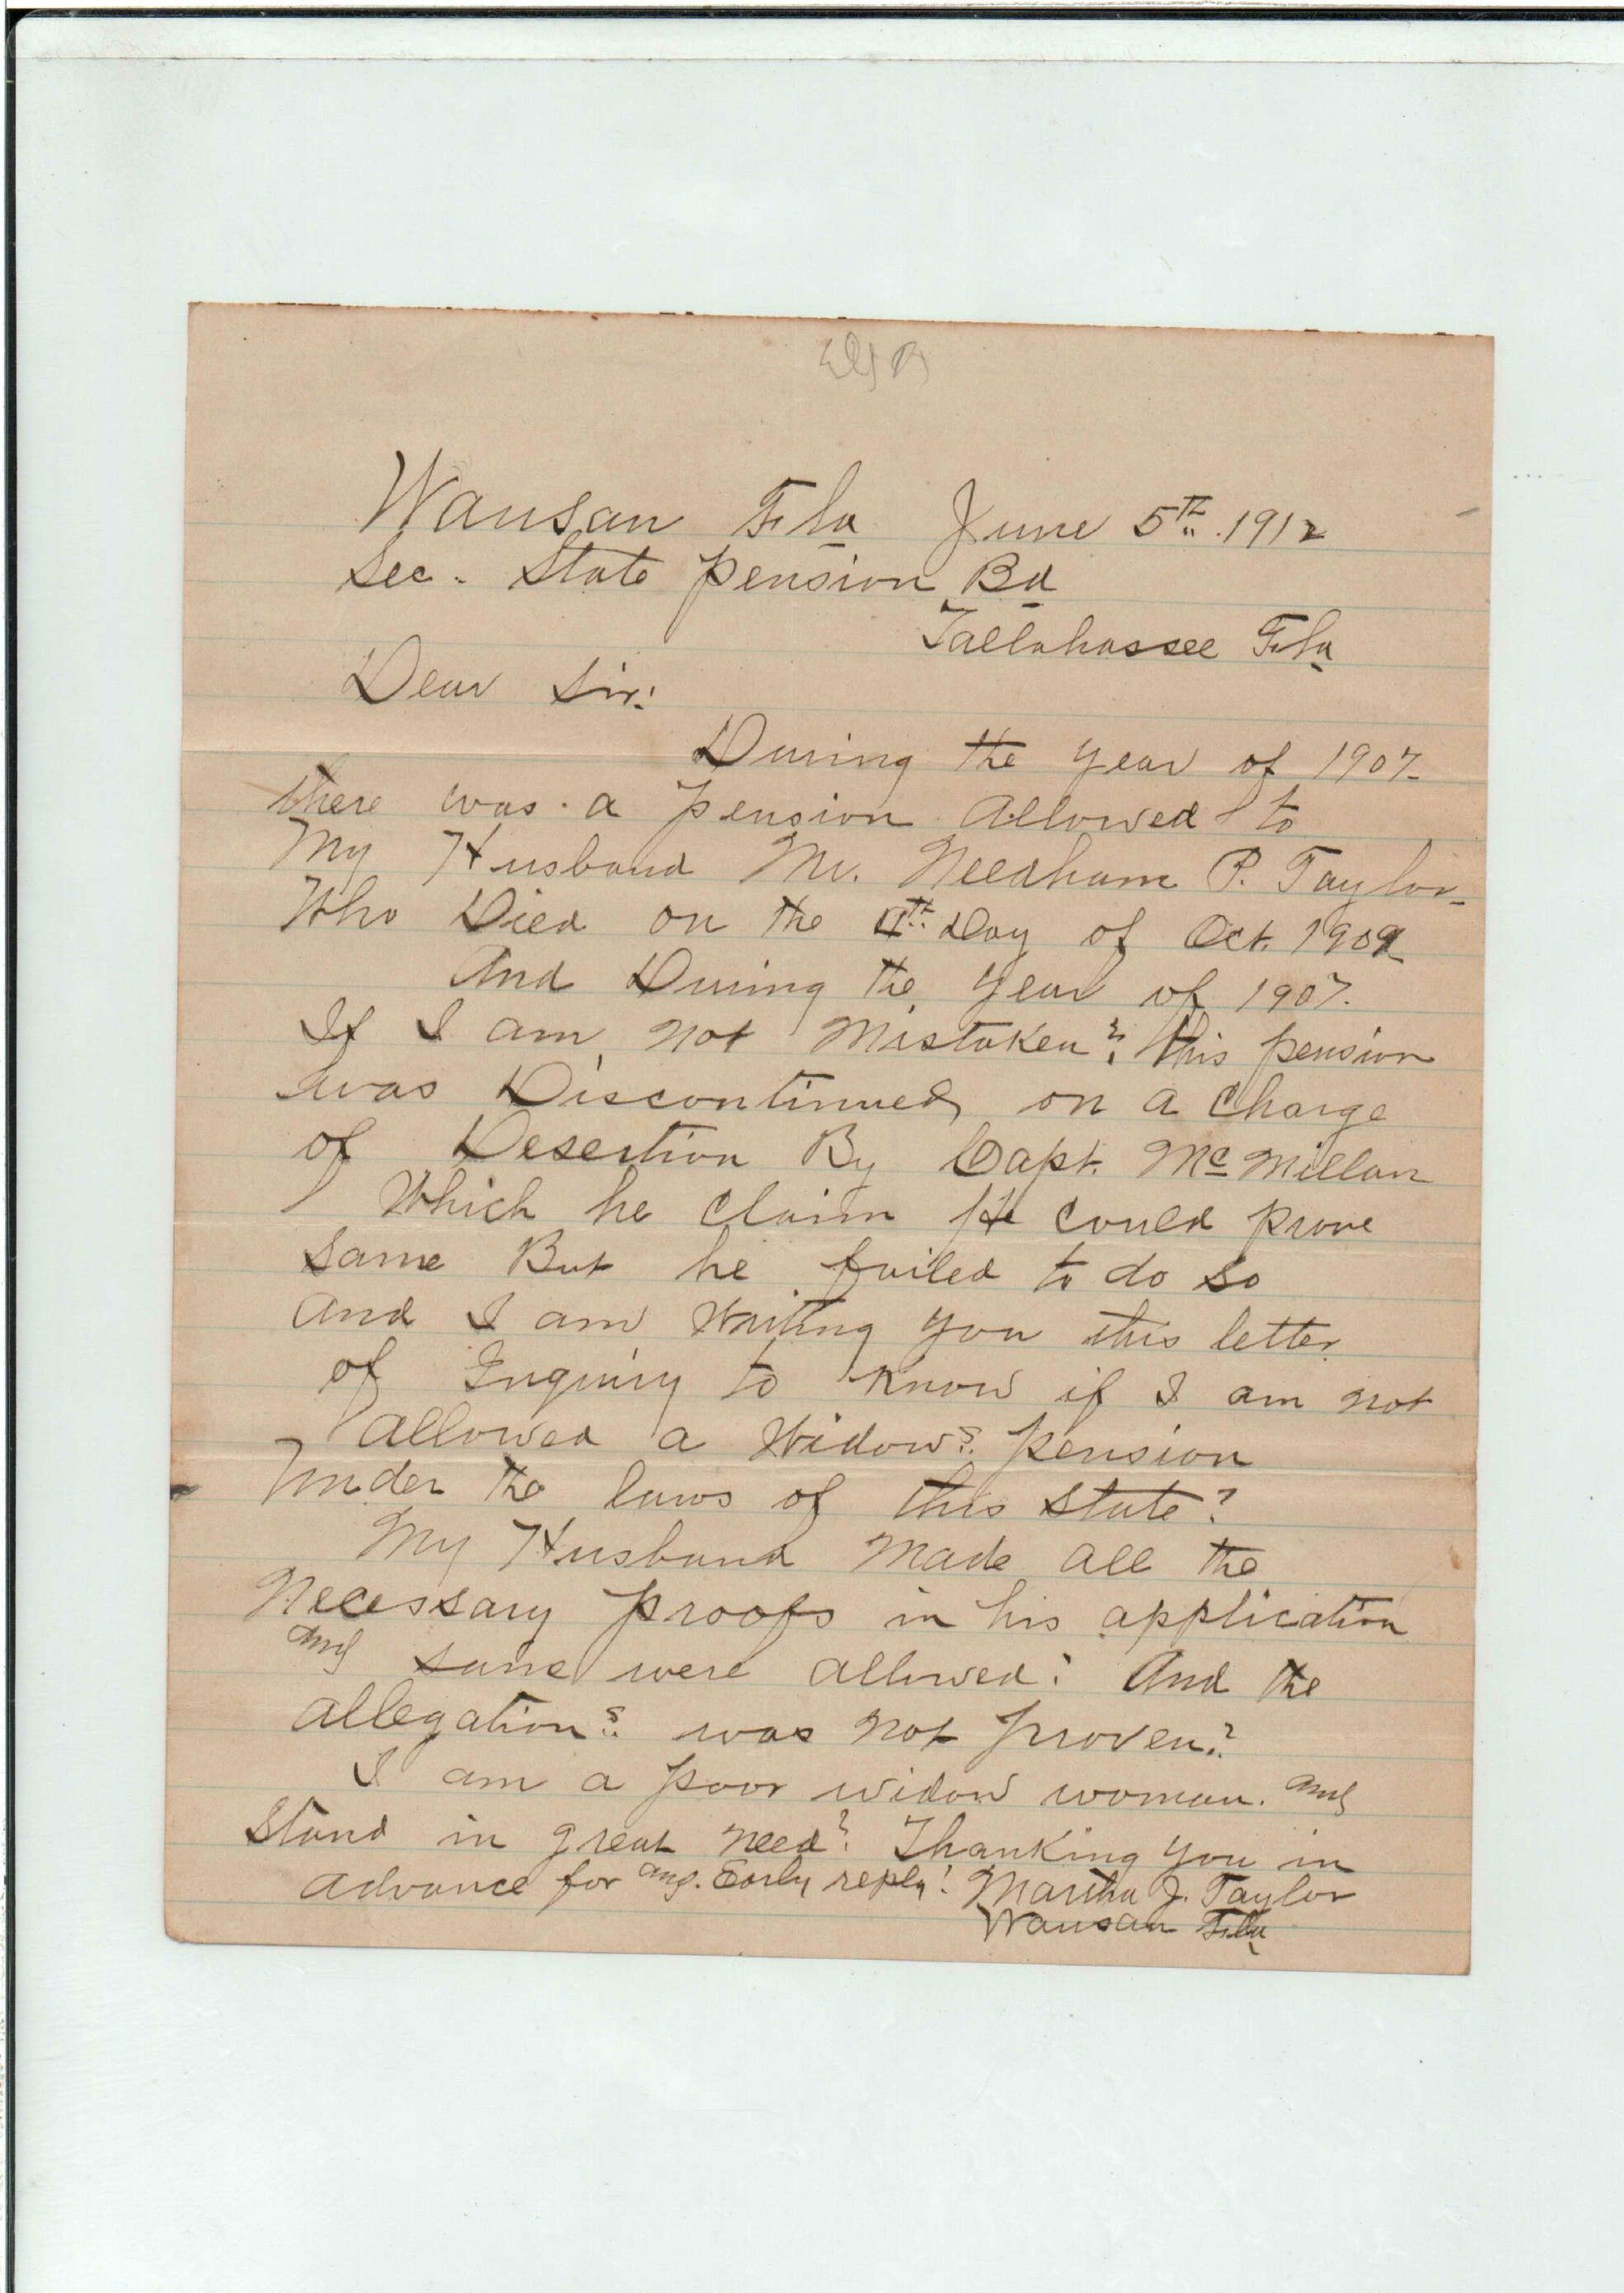 Wausau Fla June 5th 1912
Sec. State Pension Bd
Tallahassee Fla
Dear Sir:
During the year of 1907
there was a pension Allowed to
My Husband Mr. Needham P. Taylor
Who Died on the 4th Day of Oct. 1909
And During the year of 1907.
If I am not Mistaken? this pension
was Discontinued on a Charge
of Desertion By Capt. McMillan
Which he Claim He Could prove
same But he failed to do so
And I am Writing you this letter
of Inquiry to Know if I am not
Allowed a Widow's pension
under the laws of this State?
My Husband Made all the
Necessary proofs in his application
and same were allowed: And the
Allegations was Not proven?
I am a poor widow woman. and
Stand in great Need? Thanking you in
advance for any. Early reply! Martha J. Taylor
Wausau Fla